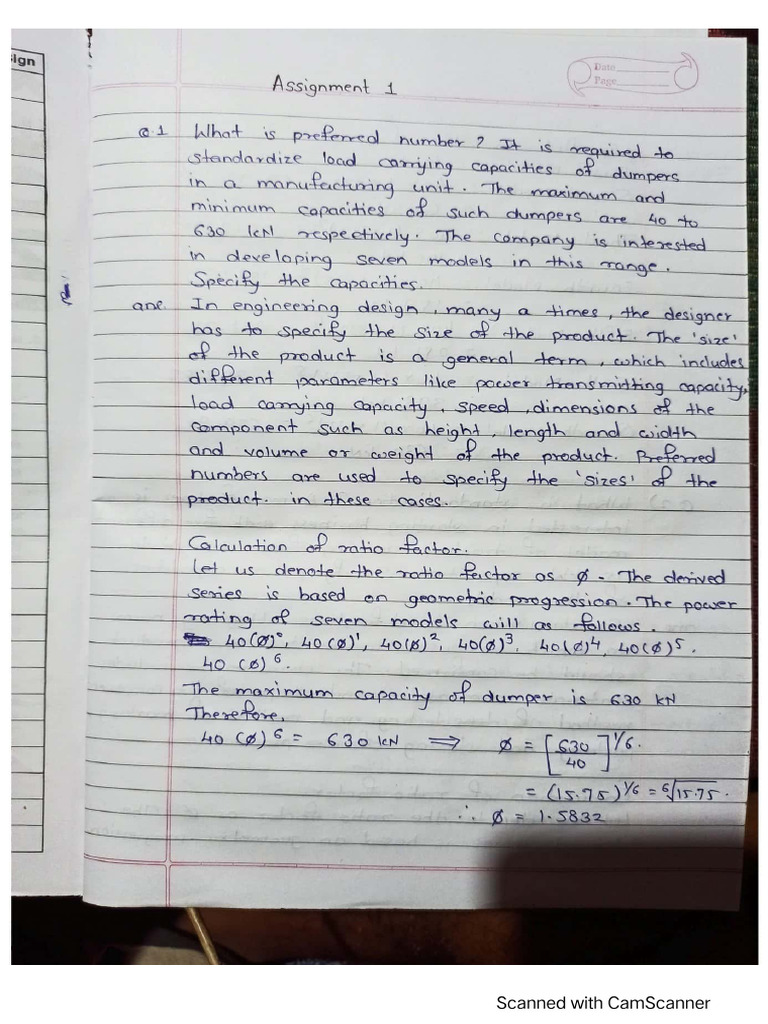 ign
Date
Page
Assignment 1
Q.1 What is preferred number? It is required to
standardize load carrying capacities of dumpers
in a manufacturing unit. The maximum and
minimum capacities of such dumpers are 40 to
630 kN respectively. The company is interested
in developing seven models in this range.
Specify the capacities.
ans. In engineering design, many a times, the designer
has to specify the size of the product. The 'size'
of the product is a general term, which includes
different parameters like power transmitting capacity,
load carrying capacity, speed, dimensions of the
component such as height, length and width
and volume or weight of the product. Preferred
numbers are used to specify the 'sizes' of the
product. in these cases.
Calculation of ratio factor.
Let us denote the ratio factor as ø. The derived
series is based on geometric progression. The power
rating of seven models will as follows.
40(ø)⁰, 40(ø)¹, 40(ø)², 40(ø)³, 40(ø)⁴, 40(ø)⁵.
40 (ø)⁶.
The maximum capacity of dumper is 630 kN
Therefore,
40 (ø)⁶ = 630 kN ⟹ ø = [630/40]^1/6.
= (15.75)^1/6 = ⁶√15.75.
∴ ø = 1.5832
Scanned with CamScanner